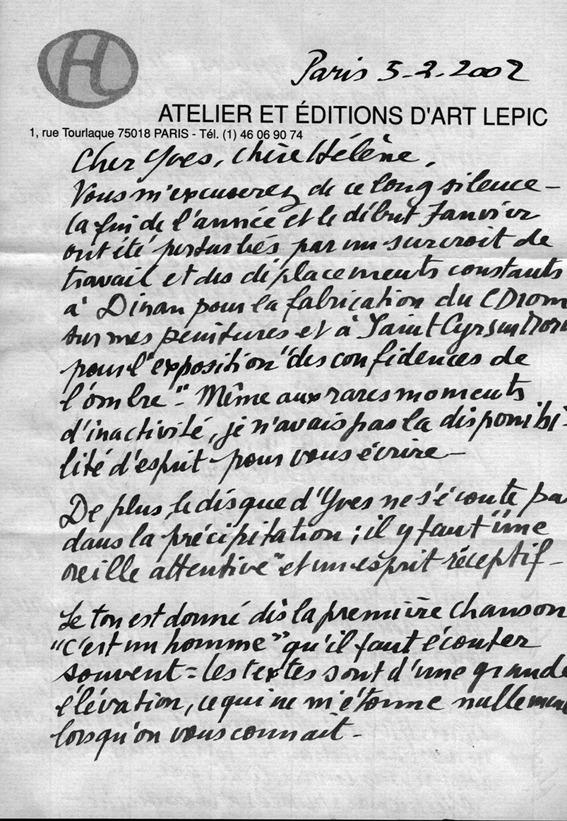 H
Paris 5-2-2002
ATELIER ET ÉDITIONS D'ART LEPIC
1, rue Tourlaque 75018 PARIS - Tél. (1) 46 06 90 74
Cher Yves, chère Hélène,
Vous m'excuserez de ce long silence -
la fin de l'année et le début Janvier
ont été perturbés par un surcroit de
travail et des déplacements constants
à Dinan pour la fabrication du CDrom
sur mes peintures et à Saint Cyr sur
pour l'exposition "des confidences de
l'ombre". Même aux rares moments
d'inactivité, je n'avais pas la disponibi-
lité d'esprit pour vous écrire -
De plus le disque d'Yves ne s'écoute pa
dans la précipitation ; il y faut "une
oreille attentive" et un esprit réceptif -
Le ton est donné dès la première chanson
"C'est un homme" qu'il faut écouter
souvent = les textes sont d'une grande
élévation, ce qui ne m'étonne nullement
lorsqu'on vous connait -